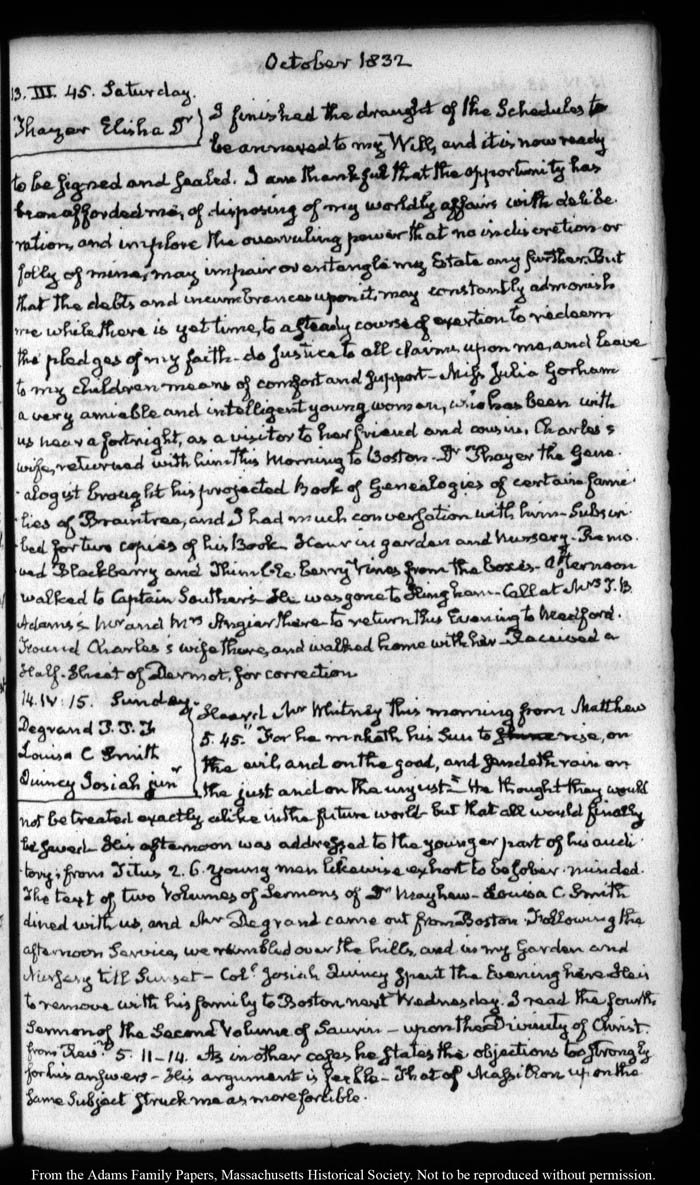 October 1832
13. III. 45. Saturday.
Thayer Elisha Dr
I finished the draught of the Schedules to
be annexed to my Will, and it is now ready
to be signed and sealed. I am thankful that the opportunity has
been afforded me, of disposing of my worldly affairs with delibe-
ration, and implore the overruling power that no indiscretion or
folly of mine, may impair or entangle my Estate any further. But
that the debts and incumbrances upon it, may constantly admonish
me while there is yet time, to a steady course of exertion to redeem
the pledges of my faith - do justice to all claims upon me, and leave
to my children means of comfort and support - Miss Julia Gorham
a very amiable and intelligent young woman, who has been with
us near a fortnight, as a visitor to her friend and cousin, Charles's
wife, returned with him this Morning to Boston. Dr Thayer the Gene-
alogist brought his projected Book of Genealogies of certain fami-
lies of Braintree, and I had much conversation with him - Subscri-
bed for two copies of his Book. Hour in garden and Nursery. Remo-
ved Blackberry and Thimble berry Vines from the boxes. Afternoon
walked to Captain Souther's. He was gone to Hingham - Call at Mrs T. B.
Adams's Mr and Mrs Angier there to return this Evening to Medford.
Found Charles's wife there, and walked home with her - Received a
Half-Sheet of Dermot, for correction
14. IV: 15. Sunday.
Degrand P. P. F
Louisa C Smith
Quincy Josiah junr
Heard Mr Whitney this morning from Matthew
5. 45. "For he maketh his Sun to rise, on
the evil and on the good, and sendeth rain on
the just and on the unjust" He thought they would
not be treated exactly alike in the future world but that all would finally
be saved - His afternoon was addressed to the younger part of his audi-
tory; from Titus 2. 6. young men likewise exhort to be sober-minded.
The text of two Volumes of Sermons of Dr Mayhew - Louisa C. Smith
dined with us, and Mr Degrand came out from Boston. Following the
afternoon Service, we rambled over the hills, and in my Garden and
Nursery till Sunset - Coll. Josiah Quincy spent the Evening here He is
to remove with his family to Boston next Wednesday. I read the fourth
Sermon of the Second Volume of Saurin - upon the Divinity of Christ.
from Revn. 5. 11-14. As in other cases he states the objections too strongly
for his answers - His argument is feeble - That of Massillon upon the
same Subject struck me as more forcible.
From the Adams Family Papers, Massachusetts Historical Society. Not to be reproduced without permission.